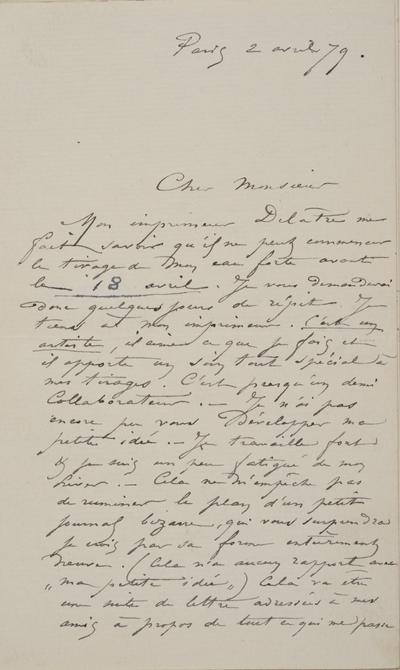 Paris 2 avril 79.
Cher Monsieur
Mon imprimeur Delatre me
fait savoir qu'il ne peut commencer
le tirage de mon eau forte avant
le 18 avril. Je vous demanderai
donc quelques jours de répit. Je
tiens à mon imprimeur. C'est un
artiste, il aime ce que je fais et
il apporte un soin tout spécial à
mes tirages. C'est presqu'un demi
Collaborateur. — Je n'ai pas
encore pu vous développer ma
petite idée. — Je travaille fort
& je suis un peu fatigué de mon
hiver. — Cela ne m'empêche pas
de ruminer le plan d'un petit
journal bizarre, qui vous surprendra
je crois par sa forme entièrement
neuve. (Cela n'a aucun rapport avec
"ma petite idée") Cela va être
une suite de lettre adressées à mes
amis à propos de tout ce qui me passe